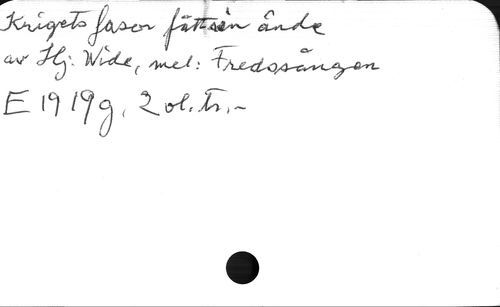 Krigets fasor fått sin ände
av Hj: Wide, mel: Fredssången
E 1919g, 2 ol. tr. -